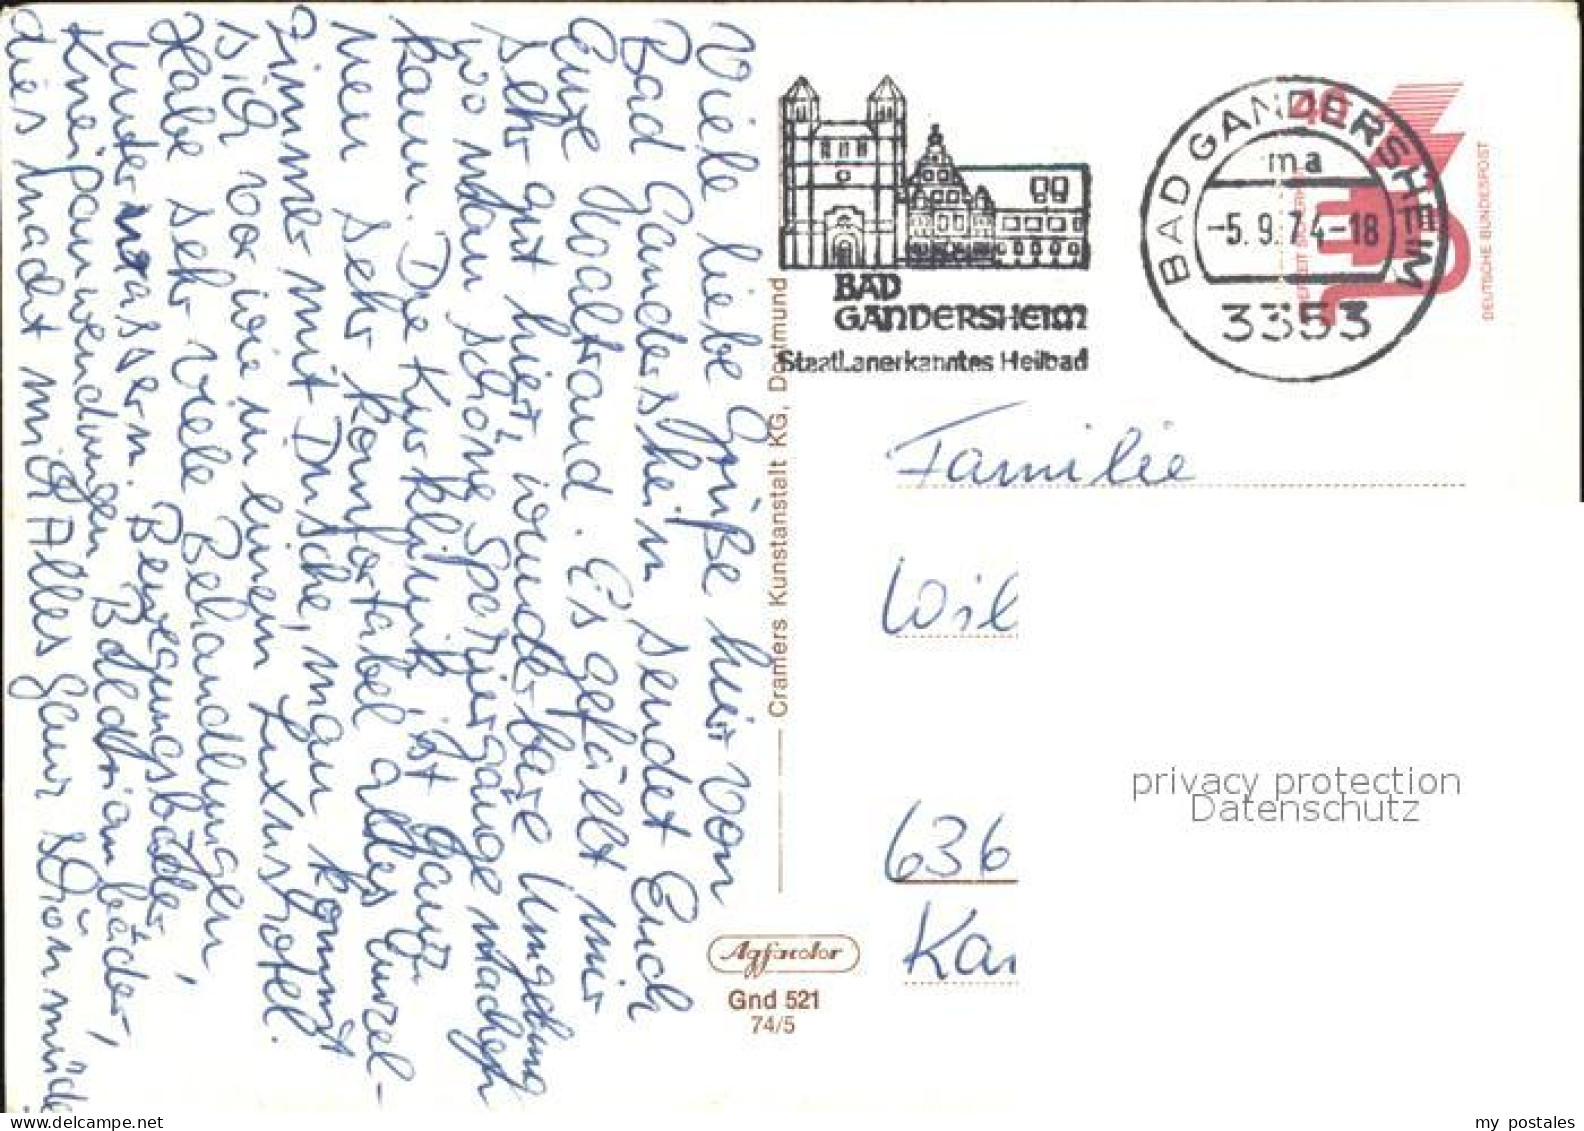 Viele liebe Grüße hier von
Bad Gandersheim sendet Euch
Eure Waltraud. Es gefällt mir
sehr gut hier, wunderbare Umgebung
wo man schöne Spaziergänge machen
kann. Die Kurklinik ist ganz
neu sehr komfortabel alles Einzel-
zimmer mit Dusche, man kommt
sich vor wie in einem Luxushotel.
Habe sehr viele Behandlungen
Unterwasserm. Bewegungsbäder,
Kneipanwendungen Baldrianbäder,
dies macht mich Alles ganz schön müde
BAD
GANDERSHEIM
Staatl. anerkanntes Heilbad
BAD GANDERSHEIM
ma
-5.9.74-18
3353
40
DEUTSCHE BUNDESPOST
Familie
Wil
636
Kar
Cramers Kunstanstalt KG, Dortmund
Agfacolor
Gnd 521
74/5
privacy protection
Datenschutz
my postales